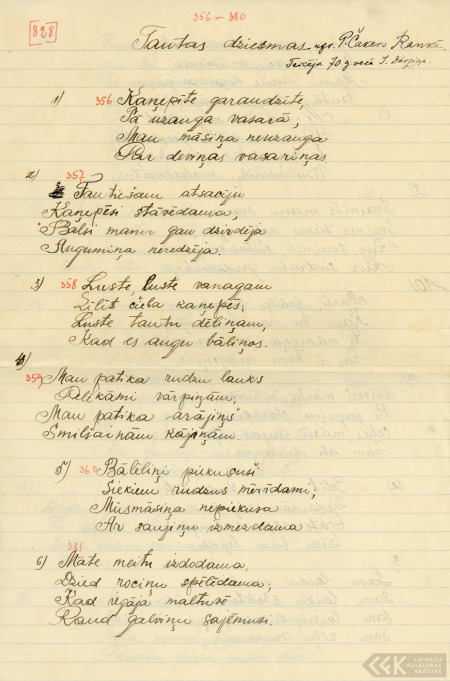 356 – 380
[828]
Tautas dziesmas P. Čakars Rankī.
Teicēja 70 g. vecā I. Dārziņa.
1) 356 Kaņepīte garaudzīte,
Tā uzauga vasarā;
Man māsiņa neuzauga
Par deviņas vasariņas
2) 357 Tautiešam atsacīju
Kaņepēsi stāvēdama;
Balsi manu gan dzirdēja
Augumiņa neredzēja.
3) 358 Luste, luste vanagam
Zīlīt' čieba kaņepēs;
Luste tautu dēliņam,
Kad es augu bāliņos.
4)
359 Man patika rudzu lauks
Pelēkām vārpiņām;
Man patika arājiņš
Smilšainām kājiņām
5) 360 Bāleliņi piekusuši
Siekiem rudzus mērīdami;
Mūsmāsiņa nepiekusa
Ar saujiņu izmezdama
361
6) Māte meitu izdodama,
Dzied rociņu spēlēdama;
Kad iegāja maltuvē
Raud galviņu saņēmusi.
LATVIEŠU
FOLKLORAS
KRĀTUVE